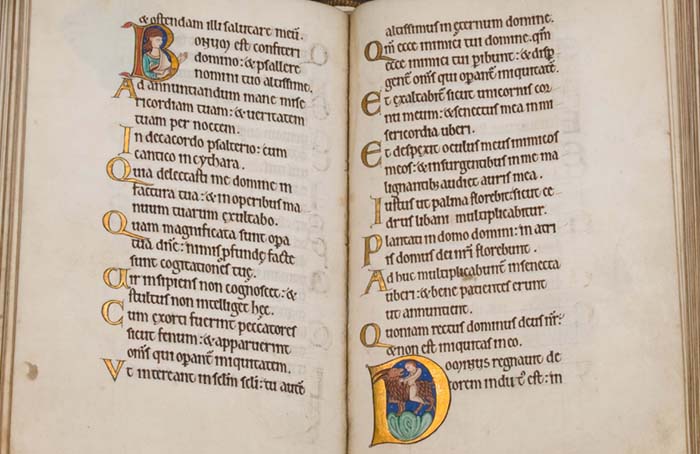 & ostendam illi salutare meū.
Bonum est confiteri
domino: & psallere
nomini tuo altissime.
Ad annuntiandum mane mise
ricordiam tuam: & ueritatem
tuam per noctem.
In decacordo psalterio: cum
cantico in cythara.
Quia delectasti me domine in
factura tua: & in operibus ma
nuum tuarum exultabo.
Quam magnificata sunt opa
tua dn̄e: nimis pfunde facte
sunt cogitationes tuę.
Uir insipiens non cognoscet: &
stultus non intelliget hęc.
Cum exorti fuerint peccatores
sicut fenum: & apparuerint
om̄s qui operant iniquitatem.
Ut intereant in sc̄lm sc̄li: tu autē
altissimus in ęternum domine.
Qm̄ ecce inimici tui domine. qm̄
ecce inimici tui pibunt: & disp
gent om̄s qui operant iniquitatē.
Et exaltabit̄ sicut unicornis cor
nu meum: & senectus mea in mi
sericordia uberi.
Et despexit oculus meus inimicos
meos: & insurgentibus in me ma
lignantibus audiet auris mea.
Iustus ut palma florebit: sicut ce
drus libani multiplicabitur.
Plantati in domo domini: in atri
is domus dei nr̄i florebunt.
Adhuc multiplicabunt in senecta
uberi: & bene patientes erunt
ut annuntient.
Quoniam rectus dominus deus nr̄:
& non est iniquitas in eo.
Dominus regnauit de
corem indut' est: in